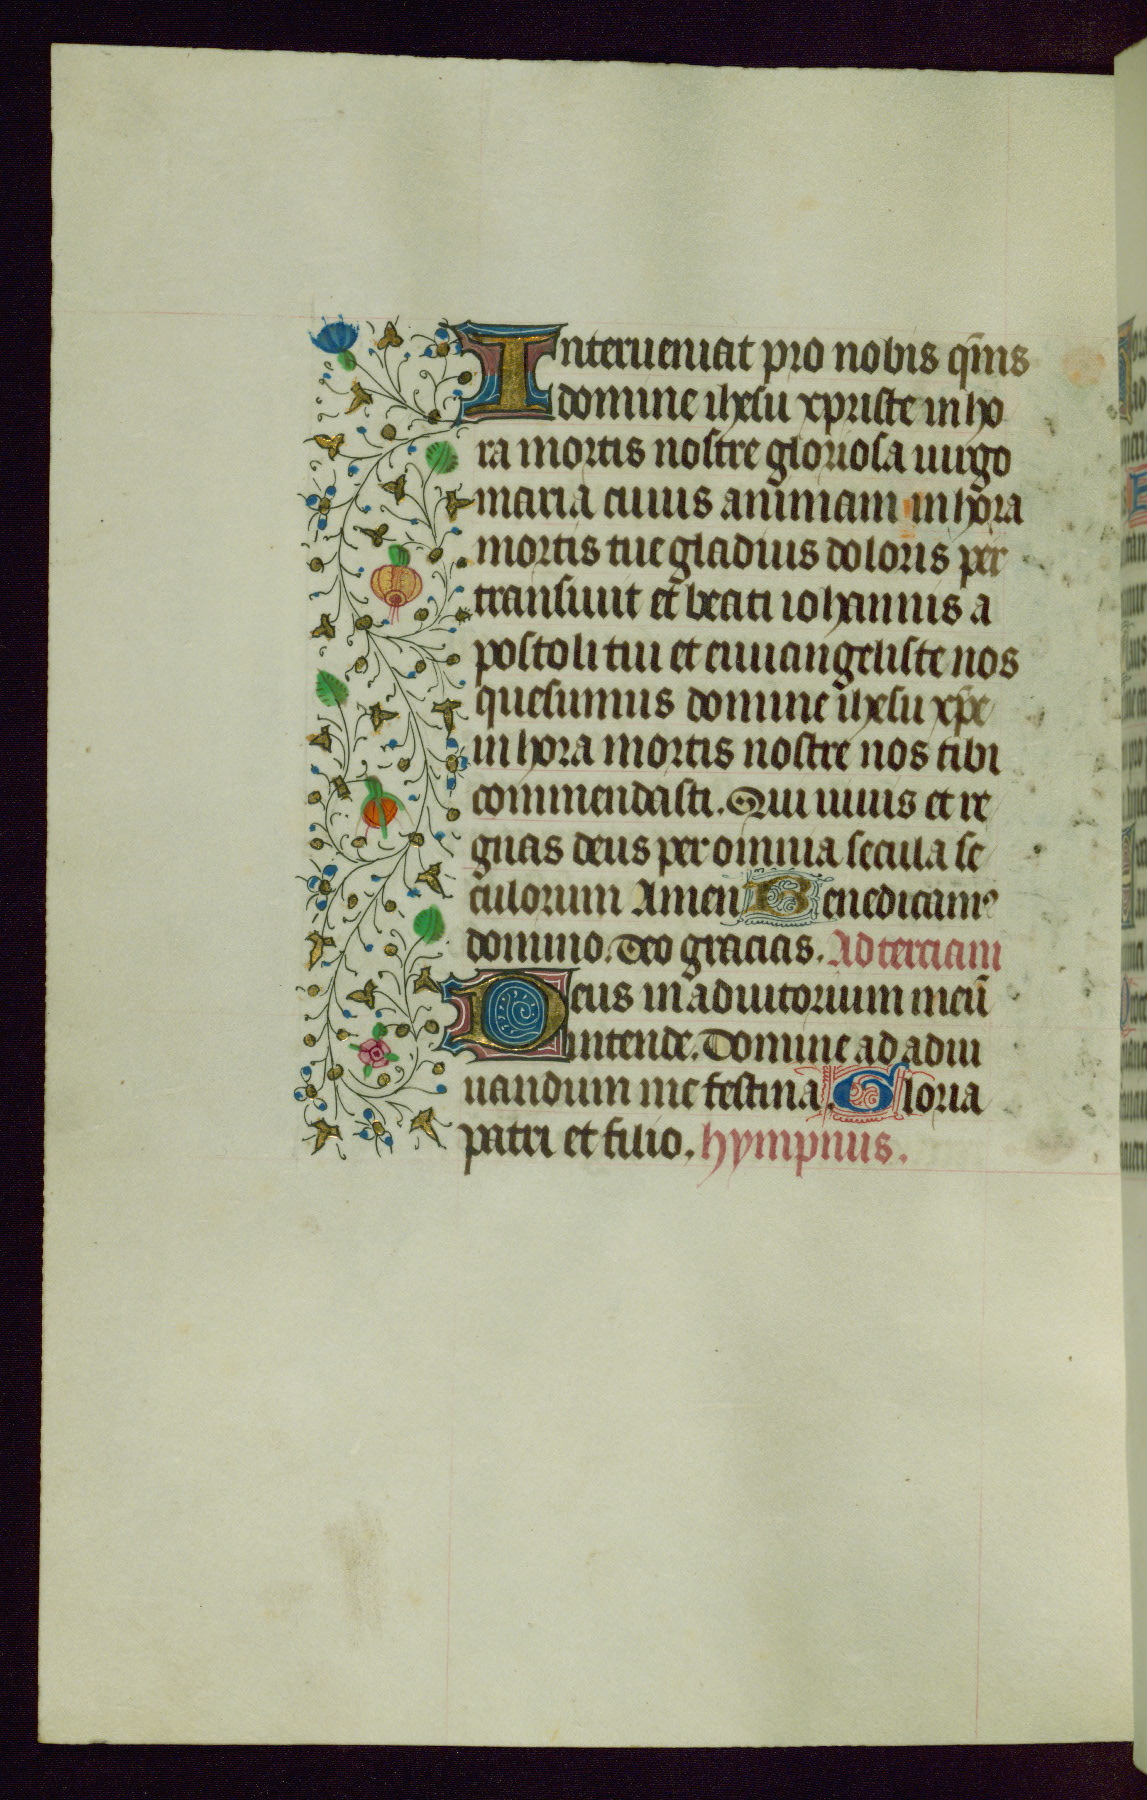 Interueniat pro nobis qm̄s
domine ihesu xpriste in ho
ra mortis nostre gloriosa uirgo
maria cuius animam in hora
mortis tue gladius doloris per
transiuit et beati iohannis a
postoli tui et euuangeliste nos
quesumus domine ihesu xp̄e
in hora mortis nostre nos tibi
commendasti. Qui uiuis et re
gnas deus per omnia secula se
culorum Amen Benedicamꝰ
domino. Deo gracias. Ad terciam
Deus in adiutorium meū
intende. Domine ad adiu
uandum me festina. Gloria
patri et filio. hympnus.